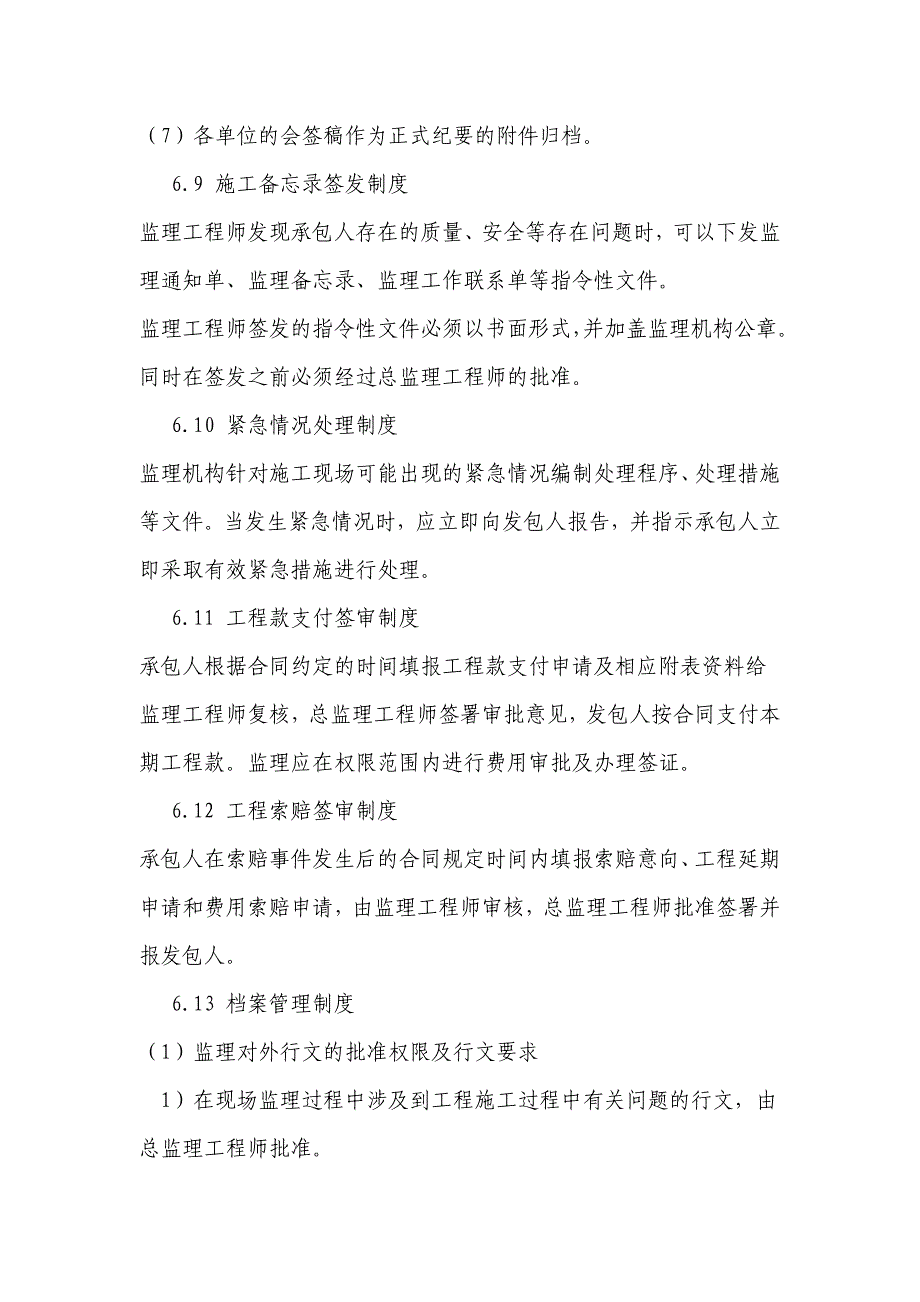 （7）各单位的会签稿作为正式纪要的附件归档。
6.9 施工备忘录签发制度
监理工程师发现承包人存在的质量、安全等存在问题时，可以下发监
理通知单、监理备忘录、监理工作联系单等指令性文件。
监理工程师签发的指令性文件必须以书面形式，并加盖监理机构公章。
同时在签发之前必须经过总监理工程师的批准。
6.10 紧急情况处理制度
监理机构针对施工现场可能出现的紧急情况编制处理程序、处理措施
等文件。当发生紧急情况时，应立即向发包人报告，并指示承包人立
即采取有效紧急措施进行处理。
6.11 工程款支付签审制度
承包人根据合同约定的时间填报工程款支付申请及相应附表资料给
监理工程师复核，总监理工程师签署审批意见，发包人按合同支付本
期工程款。监理应在权限范围内进行费用审批及办理签证。
6.12 工程索赔签审制度
承包人在索赔事件发生后的合同规定时间内填报索赔意向、工程延期
申请和费用索赔申请，由监理工程师审核，总监理工程师批准签署并
报发包人。
6.13 档案管理制度
（1）监理对外行文的批准权限及行文要求
1）在现场监理过程中涉及到工程施工过程中有关问题的行文，由
总监理工程师批准。